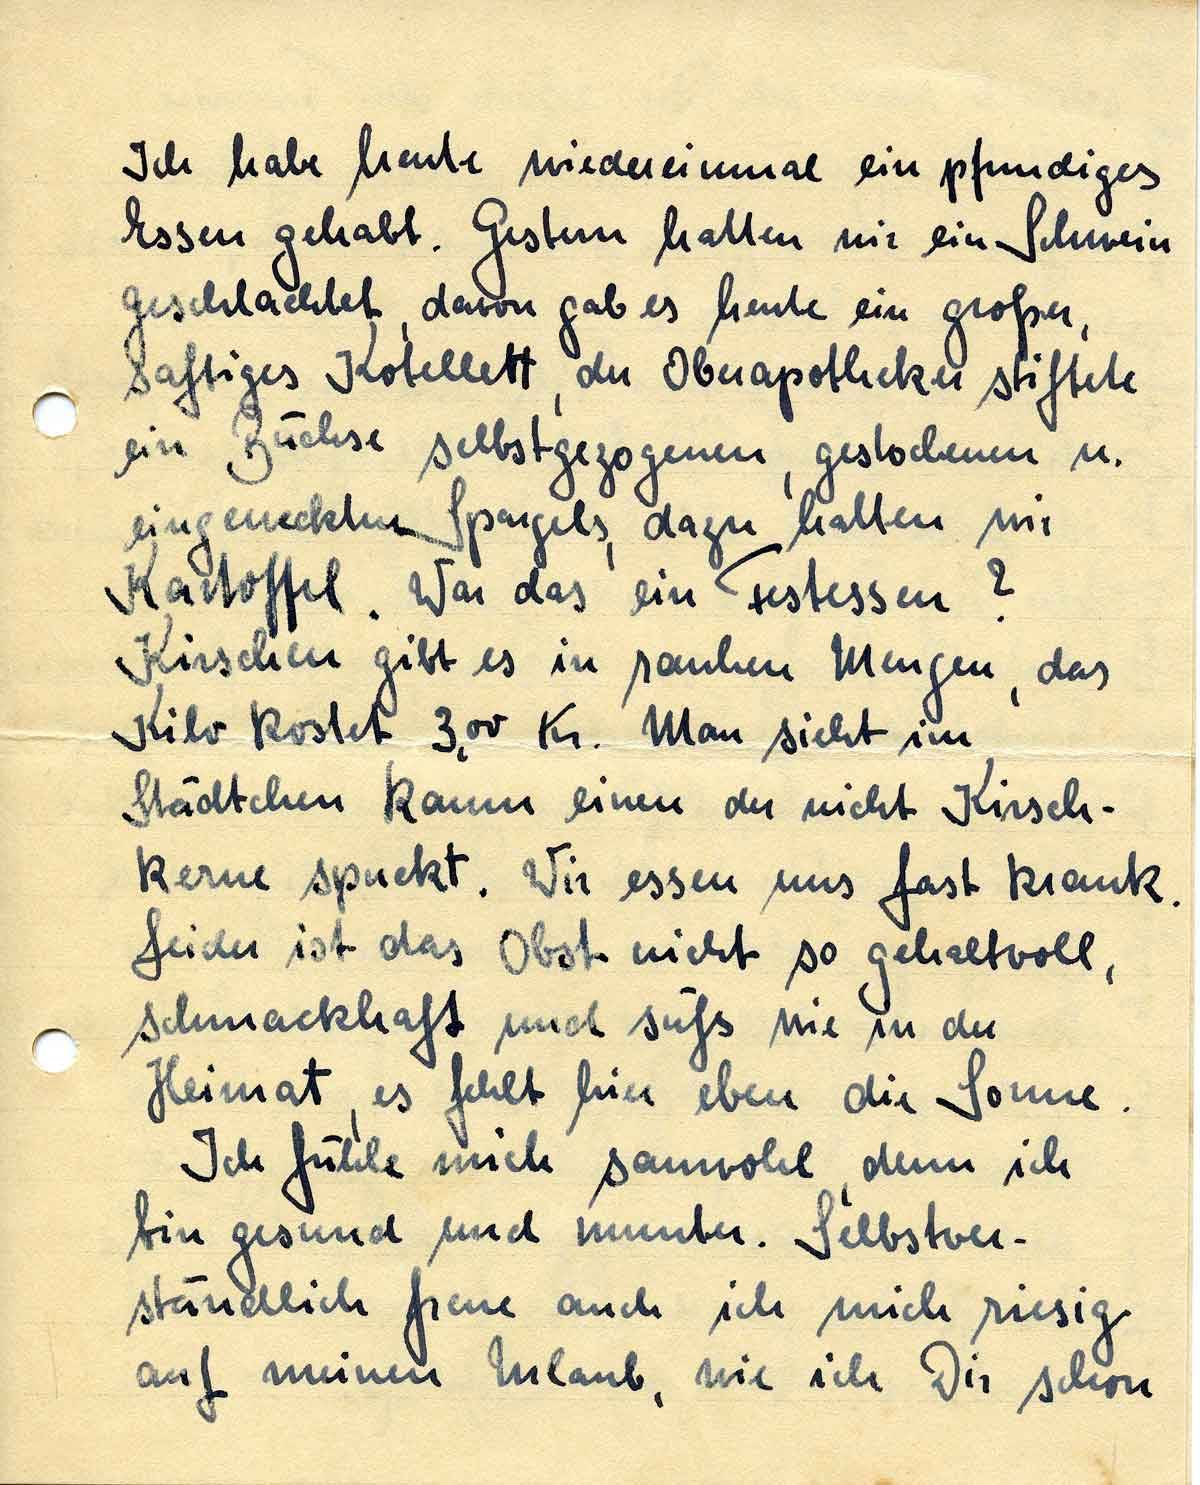 Ich habe heute wiedereinmal ein pfundiges
Essen gehabt. Gestern hatten wir ein Schwein
geschlachtet, davon gab es heute ein großes,
saftiges Kotellett, der Oberapotheker stiftete
ein Büchse selbstgezogenen, gestochenen u.
eingeweckten Spargels, dazu hatten wir
Kartoffel. War das ein Festessen?
Kirschen gibt es in rauhen Mengen, das
Kilo kostet 3,00 Kr. Man sieht im
Städtchen kaum einen der nicht Kirsch-
kerne spuckt. Wir essen uns fast krank.
Leider ist das Obst nicht so gehaltvoll,
schmackhaft und süß wie in der
Heimat, es fehlt hier eben die Sonne.
Ich fühle mich sauwohl, denn ich
bin gesund und munter. Selbstver-
ständlich freue auch ich mich riesig
auf meinen Urlaub, wie ich Dir schon